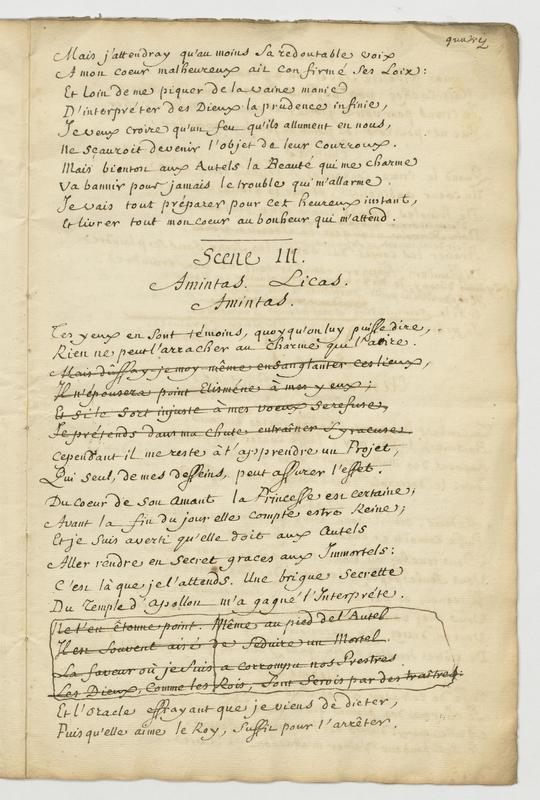 Mais j'attendray qu'au moins sa redoutable voix
A mon coeur malheureux ait confirmé ses Loix:
Et loin de me piquer de la vaine manie
D'interpréter des Dieux la prudence infinie,
Je veux croire qu'un feu qu'ils allument en nous,
Ne sçauroit devenir l'objet de leur courroux.
Mais bienton aux Autels la Beauté qui me charme
Va bannir pour jamais le trouble qui m'allarme.
Je vais tout préparer pour cet heureux instant,
Et livrer tout mon coeur au bonheur qui m'attend.
Scene III.
Amintas. Licas.
Amintas.
Tes yeux en sont témoins, quoyqu'on luy puisse dire,
Rien ne peut l'arracher au charme qui l'attire.
Mais dussay je moy même ensanglanter ces lieux,
Il n'épousera point Elisméne à mes yeux;
Et si le sort injuste à mes voeux se refuse,
Je prétends dans ma chute entraîner Syracuse
Cependant il me reste à t'apprendre un Projet,
Qui seul, de mes desseins, peut assurer l'effet.
Du coeur de son amant la Princesse est certaine;
Avant la fin du jour elle compte estre Reine;
Et je suis averti qu'elle doit aux Autels
Aller rendre en secret graces aux Immortels:
C'est là que je l'attends. Une brigue secrette
Du Temple d'Apollon m'a gagné l'Interpréte.
Ne t'en étonne point. Même au pied de l'Autel
Il est souvent aisé de séduire un Mortel.
La faveur où je suis a corrompu nos Prestres
Les Dieux, comme les Rois, sont servis par des traîtres.
Et l'oracle effrayant que je viens de dicter,
Puis qu'elle aime le Roy, suffit pour l'arrêter.